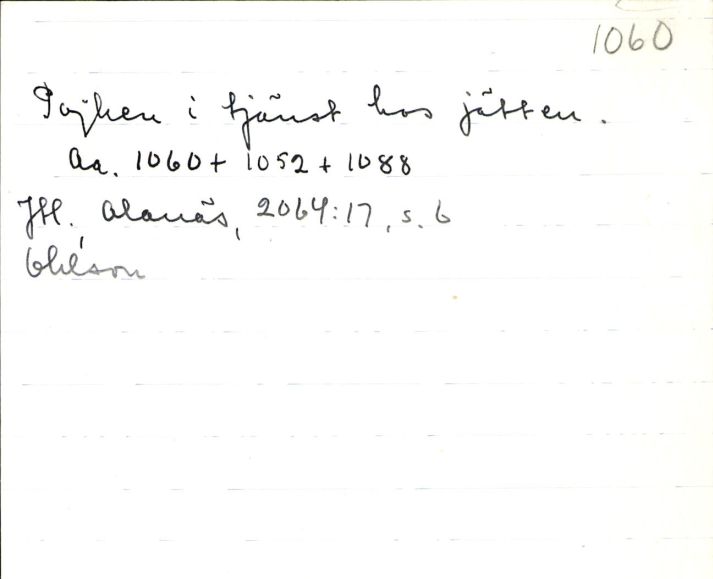 1060
Pojken i tjänst hos jätten.
Aa. 1060 + 1052 + 1088
Jtl. Alanäs, 2064:17, s. 6